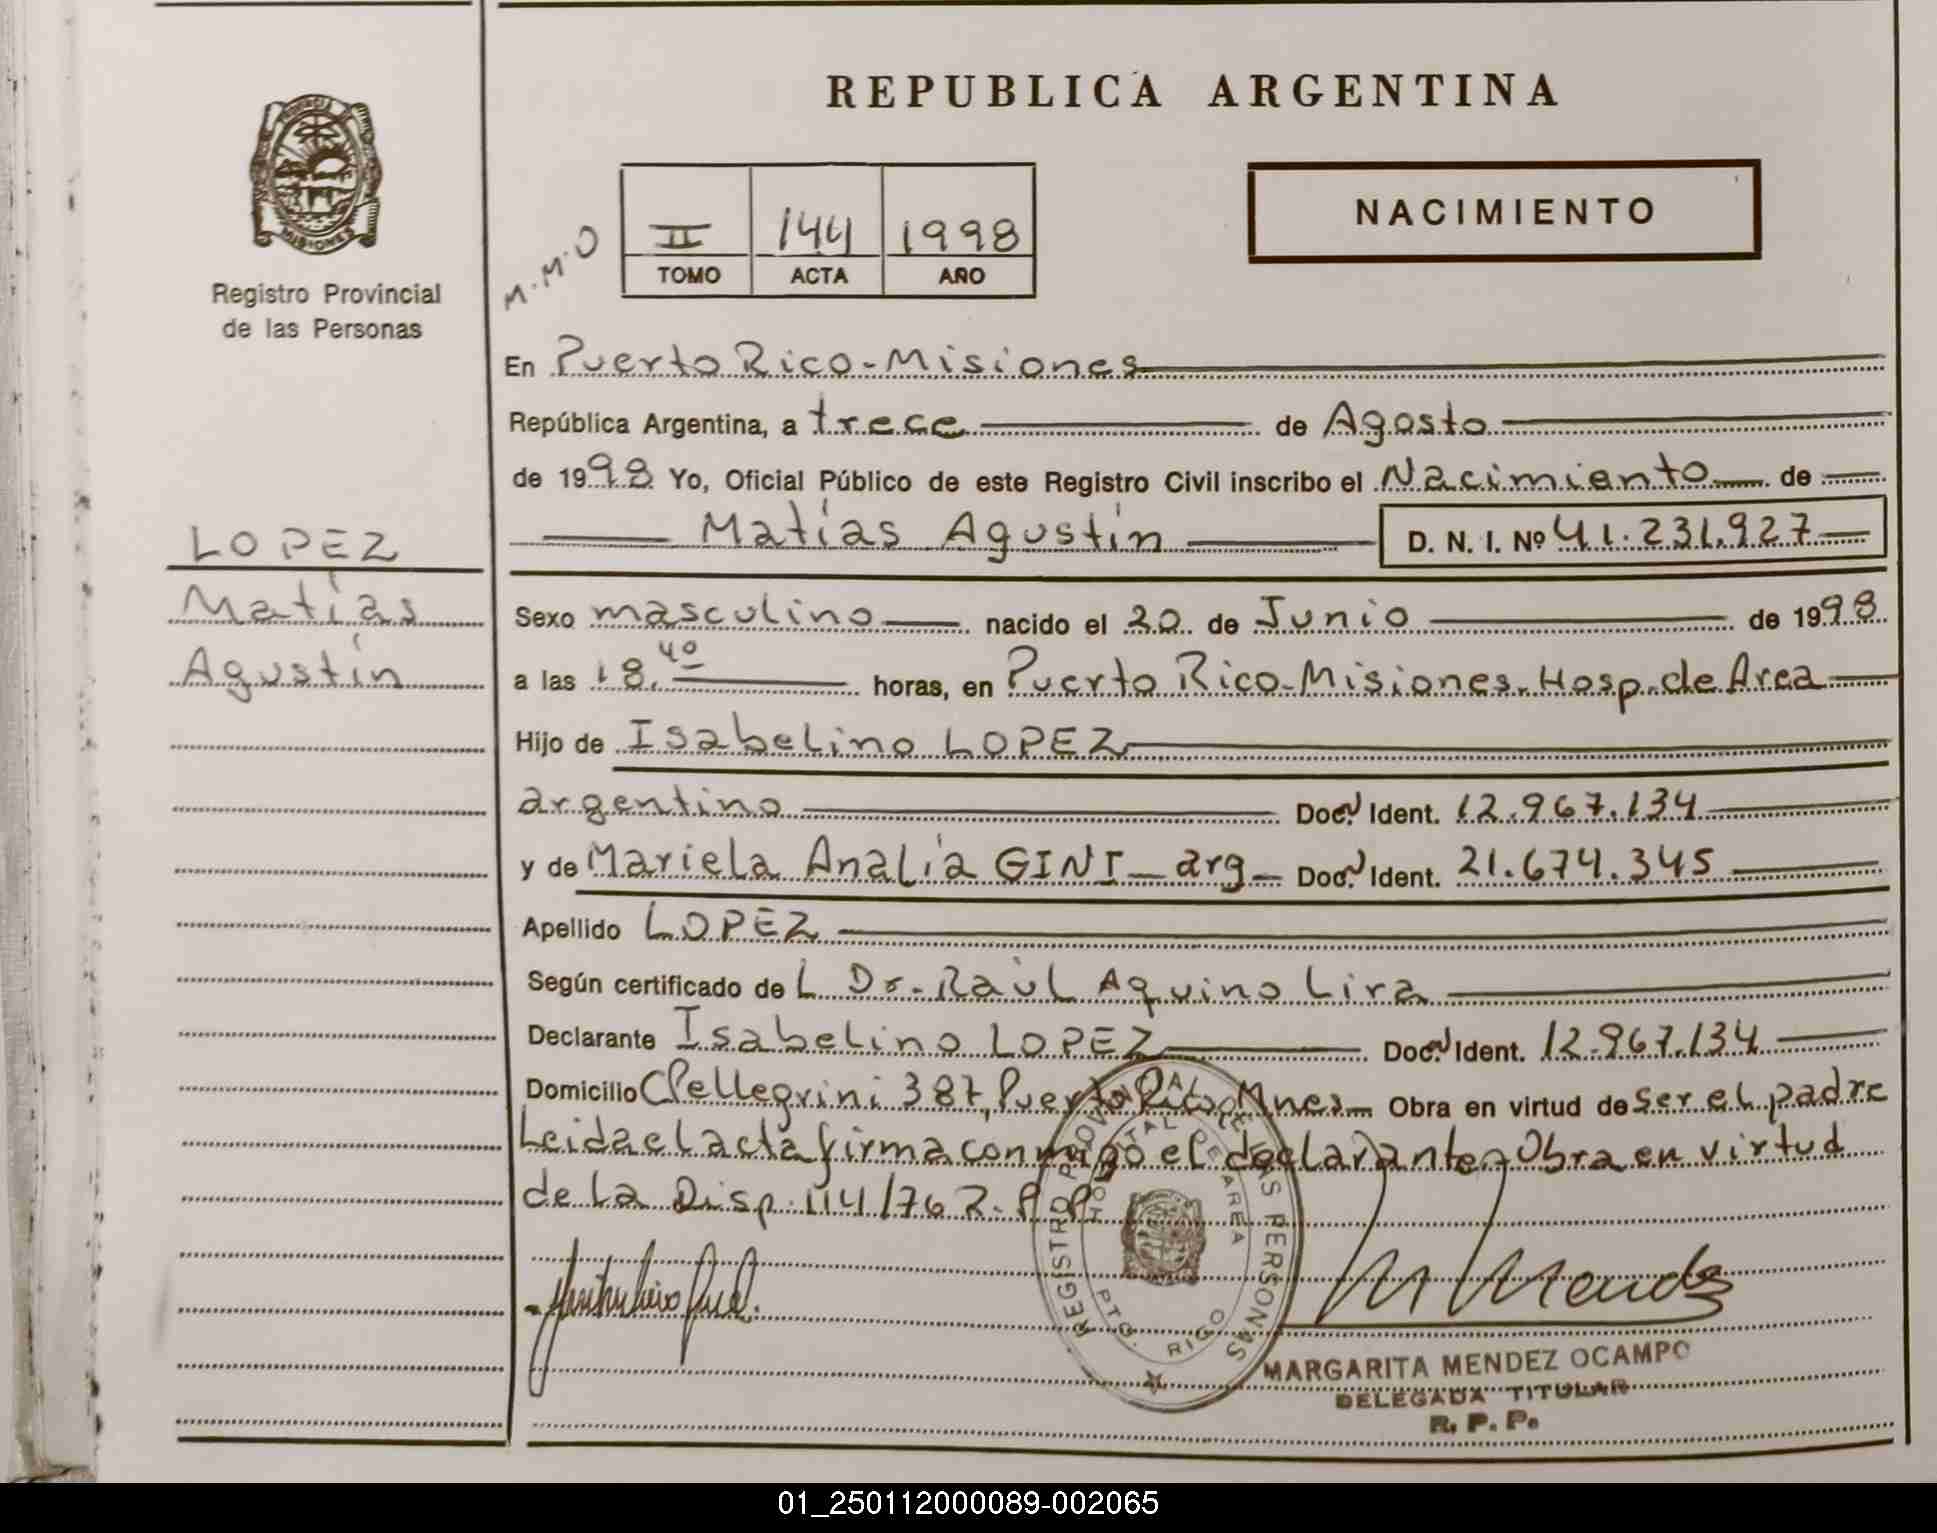 REPUBLICA ARGENTINA
MISIONES
Registro Provincial
de las Personas
M.M.O
II 144 1998
TOMO ACTA AÑO
NACIMIENTO
En Puerto Rico-Misiones
República Argentina, a trece de Agosto
de 1998 Yo, Oficial Público de este Registro Civil inscribo el Nacimiento de
Matías Agustín D. N. I. Nº 41.231.927
LOPEZ
Matías
Agustín
Sexo masculino nacido el 20 de Junio de 1998
a las 18.40 horas, en Puerto Rico-Misiones. Hosp. de Area
Hijo de Isabelino LOPEZ
argentino Doc. Ident. 12.967.134
y de Mariela Analía GINI arg Doc. Ident. 21.674.345
Apellido LOPEZ
Según certificado de L Dr. Raúl Aquino Lira
Declarante Isabelino LOPEZ Doc. Ident. 12.967.134
Domicilio C Pellegrini 387, Puerto Rico Mnes Obra en virtud de ser el padre
Leida el acta firma conmigo el declarante Obra en virtud
de la Disp. 114/76 R.P.P.
REGISTRO PROVINCIAL DE LAS PERSONAS
HOSPITAL DE AREA
PTO. RICO
M Mendez
MARGARITA MENDEZ OCAMPO
DELEGADA TITULAR
R. P. P.
01_250112000089-002065